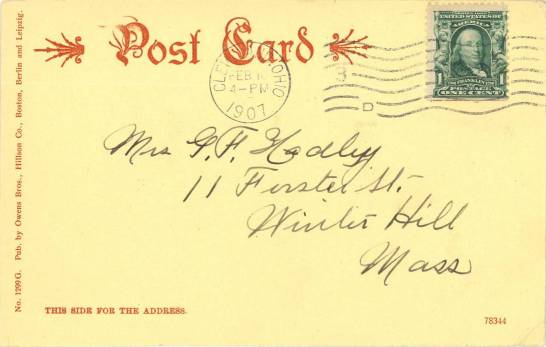 Post Card
CLEVELAND, OHIO
FEB 1
4-PM
1907
3
D
UNITED STATES OF AMERICA
1 FRANKLIN 1
POSTAGE
ONE CENT
Mrs G. F. Hadley
11 Forster St.
Winter Hill
Mass
No. 1299 G. Pub. by Owens Bros., Hillson Co., Boston, Berlin and Leipzig.
THIS SIDE FOR THE ADDRESS.
78344